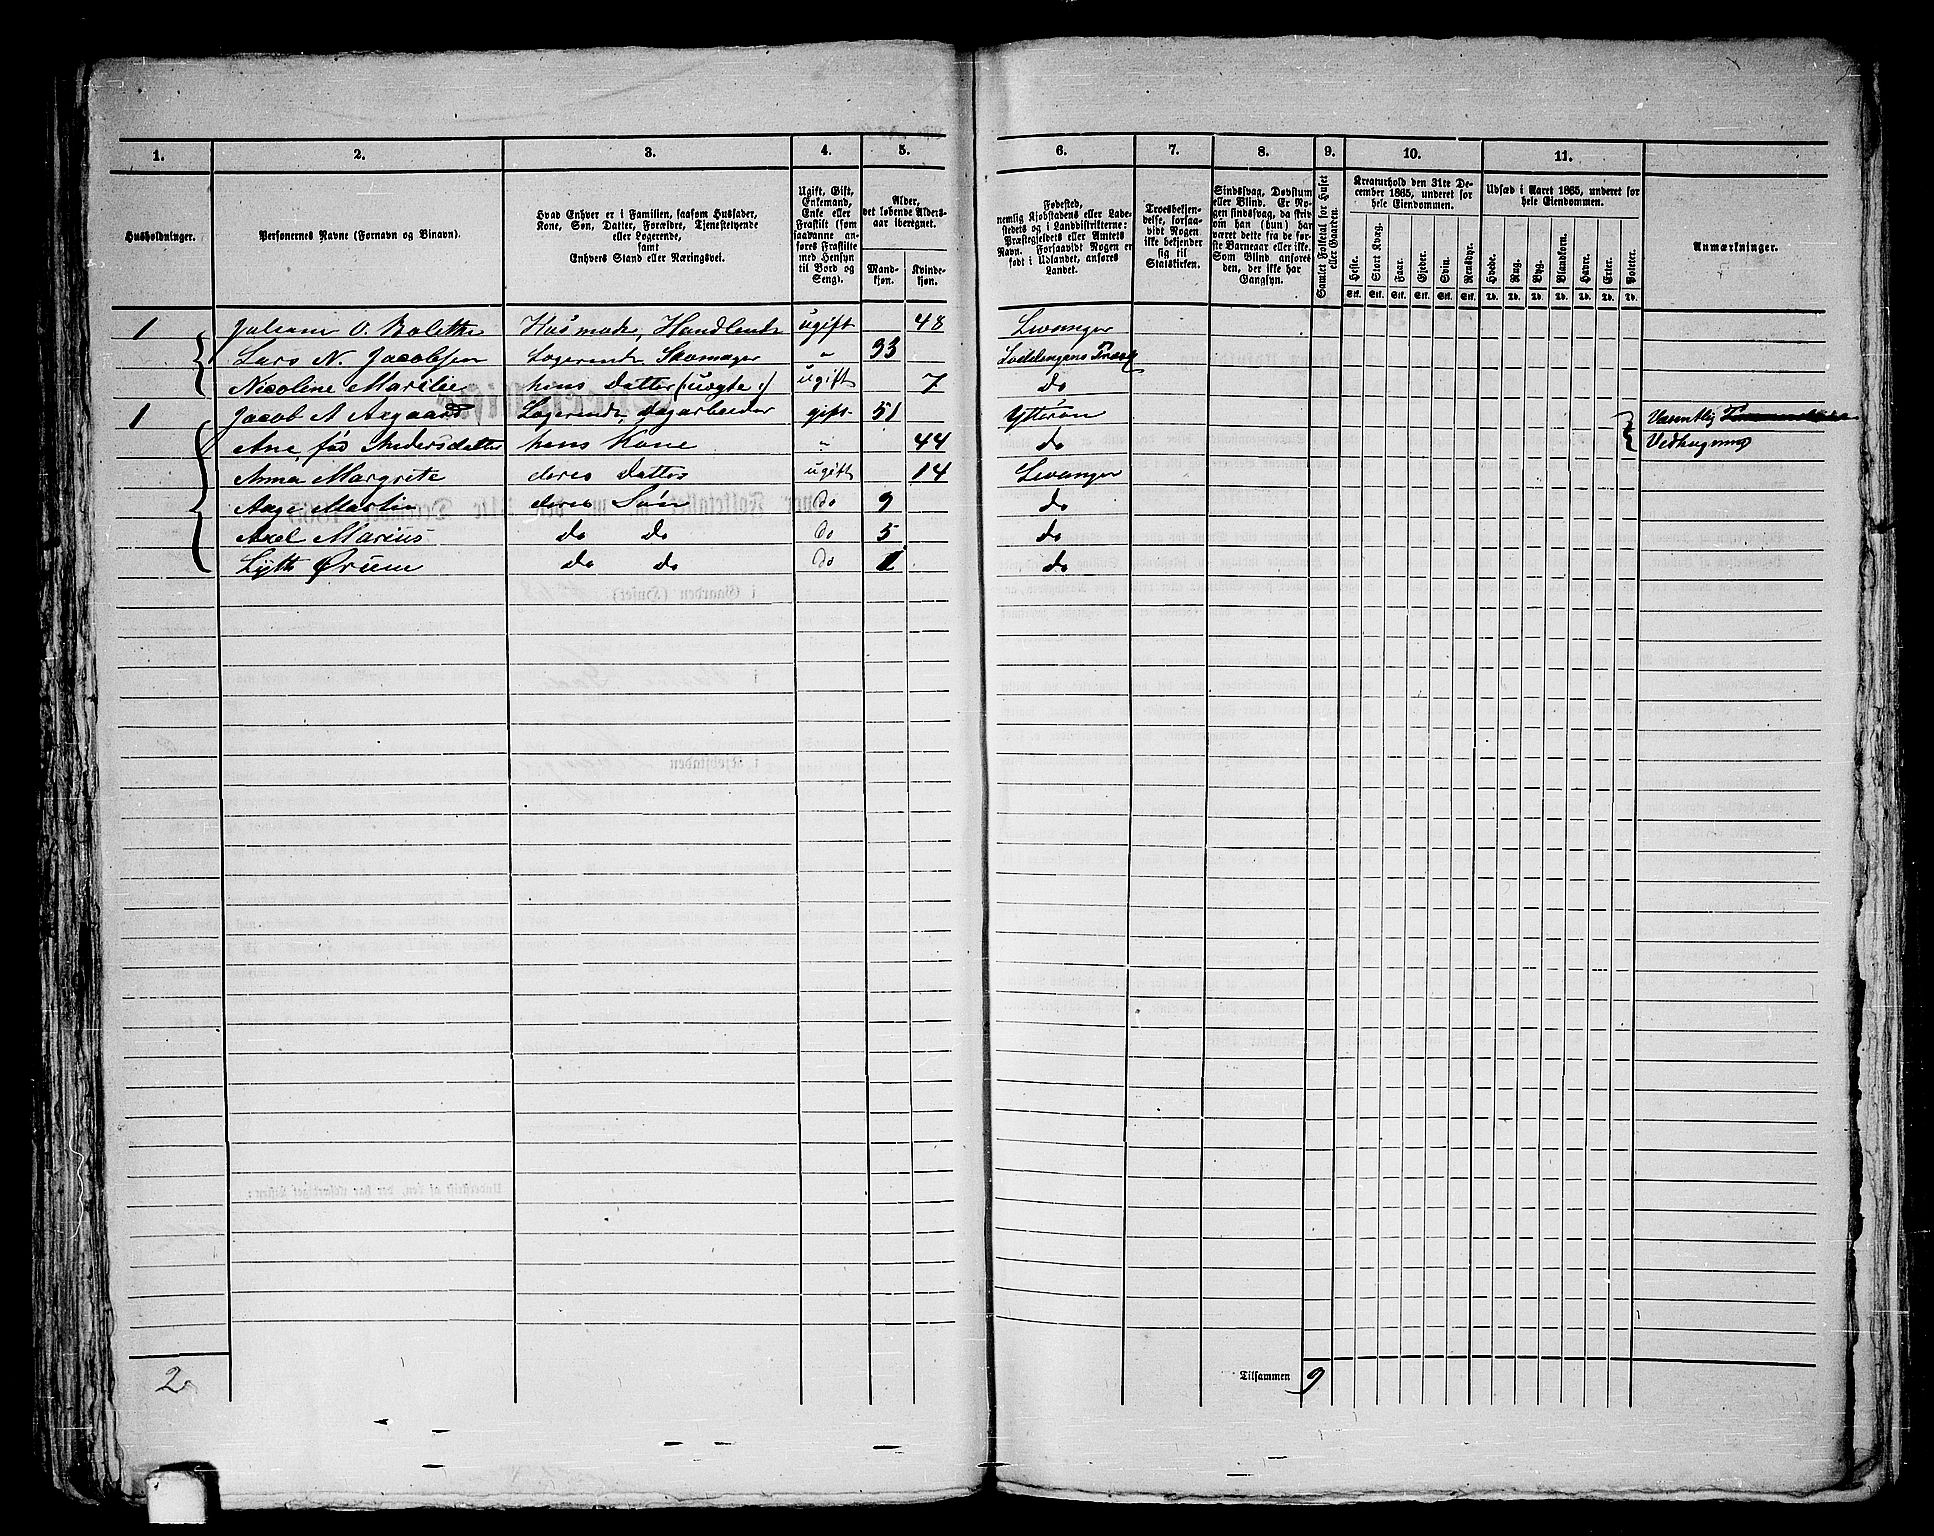 1. 2. 3. 4. 5. 6. 7. 8. 9. 10. 11.
Husholdninger.
Personernes Navne (Fornavn og Binavn).
Hvad Enhver er i Familien, saasom Husfader,
Kone, Søn, Datter, Forældre, Tjenestetyende
eller Logerende,
samt
Enhvers Stand eller Næringsvei.
Ugift, Gift,
Enkemand,
Enke eller
Fraskilt (som
saadanne an-
føres Fraskilte
med Hensyn
til Bord og
Seng).
Alder,
det løbende Alders-
aar iberegnet.
Mand-
kjøn.
Kvinde-
kjøn.
Fødested,
nemlig Kjøbstadens eller Lade-
stedets og i Landdistrikterne:
Præstegjeldets eller Amtets
Navn. Forsaavidt Nogen er
født i Udlandet, anføres
Landet.
Troesbekjen-
delse, forsaa-
vidt Nogen
ikke bekjender
sig til
Statskirken.
Sindssvag, Døvstum
eller Blind. Er No-
gen sindssvag, da skriv
om han (hun) har
været dette fra de før-
ste Barneaar eller ikke.
Som Blind anføres
den, der ikke har
Gangsyn.
Samlet Folketal for Huset
eller Gaarden.
Kreaturhold den 31te De-
cember 1865, underet for
hele Eiendommen.
Heste. Stort Kvæg. Faar. Gjeder. Svin. Rensdyr.
Stk. Stk. Stk. Stk. Stk. Stk.
Udsæd i Aaret 1865, underet for
hele Eiendommen.
Hvede. Rug. Byg. Blandkorn. Havre. Erter. Poteter.
Td. Td. Td. Td. Td. Td. Td.
Anmærkninger.
1 Juliane O. Bolette Husmoder, Handlende ugift 48 Levanger
Lars N. Jacobsen Logerende Skomager " 33 Loddengens
Nicoline Marilie hans Datter (uægte:) ugift 7 do
1 Jacob A Aagaard Logerende, dagarbeider gift 51 Ytterøen Væsentlig
Ane, fød Andersdatter hans Kone " 44 do Vedhugning
Anna Margrete deres Datter ugift 14 Levanger
Aage Martin deres Søn do 9 do
Axel Marius do do do 5 do
Lytth Ørum do do do 1 do
2 Tilsammen 9